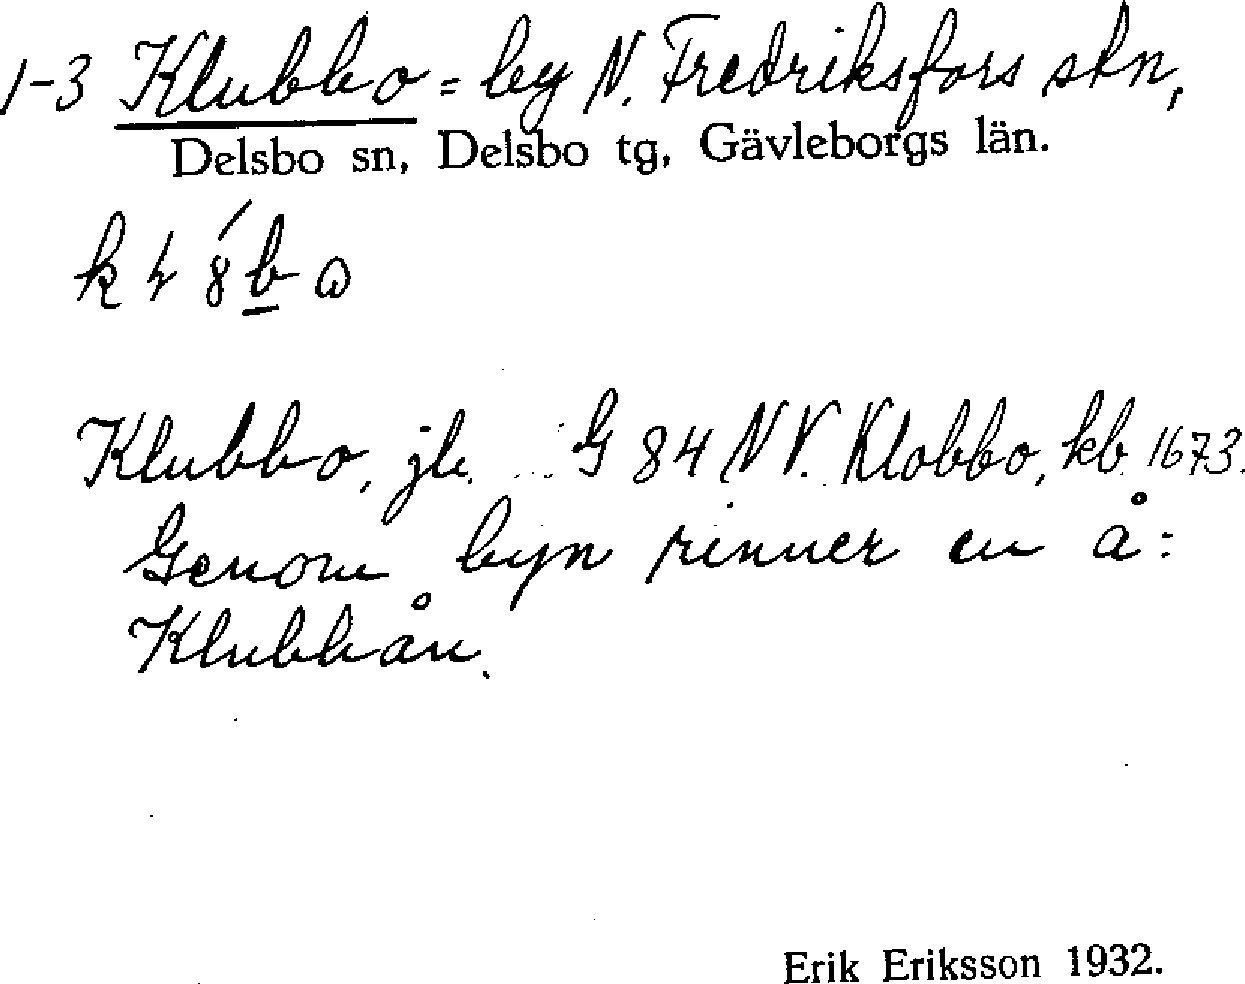 1-3 Klubbo = by N. Fredriksfors stn,
Delsbo sn, Delsbo tg, Gävleborgs län.
Klubbo, jb. G 84 NV. Klobbo, kb 1673.
Genom byn rinner en å:
Klubbån.
Erik Eriksson 1932.